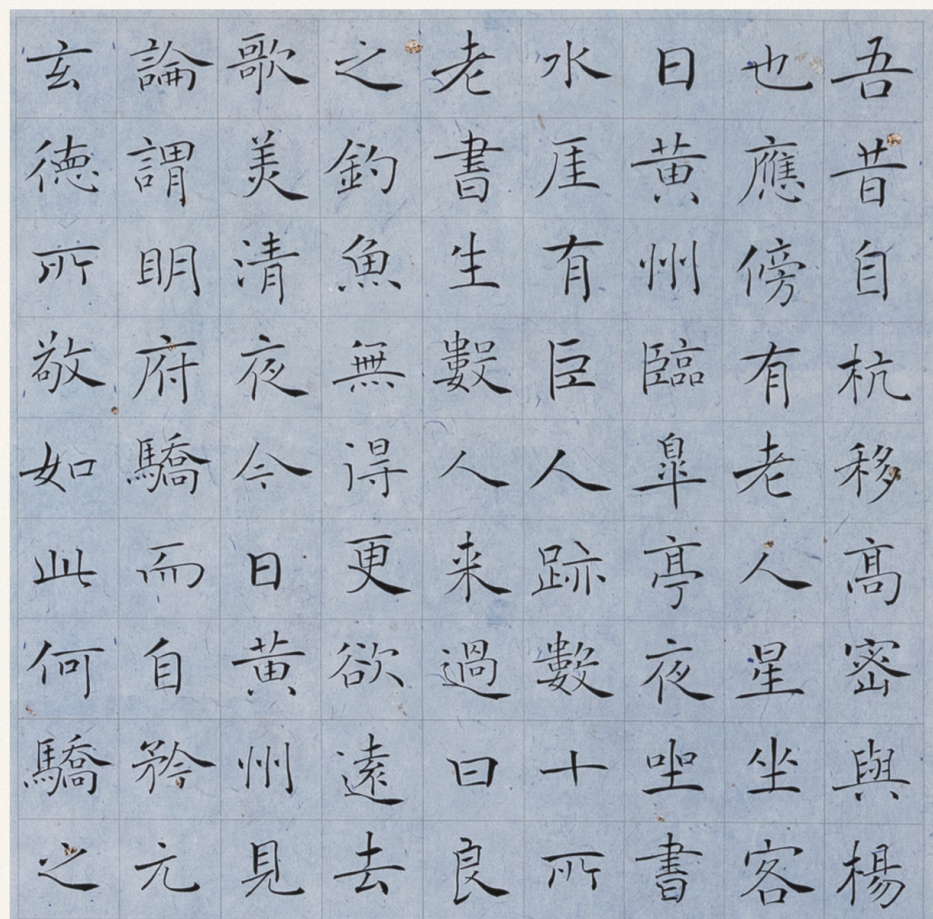 吾昔自杭移髙宻與楊
也應傍有老人星坐客
日黄州臨皐亭夜坐書
水厓有巨人跡數十所
老書生數人来過曰良
之釣魚無得更欲逺去
歌美清夜今日黄州見
論謂明府驕而自矜元
玄徳所敬如此何驕之